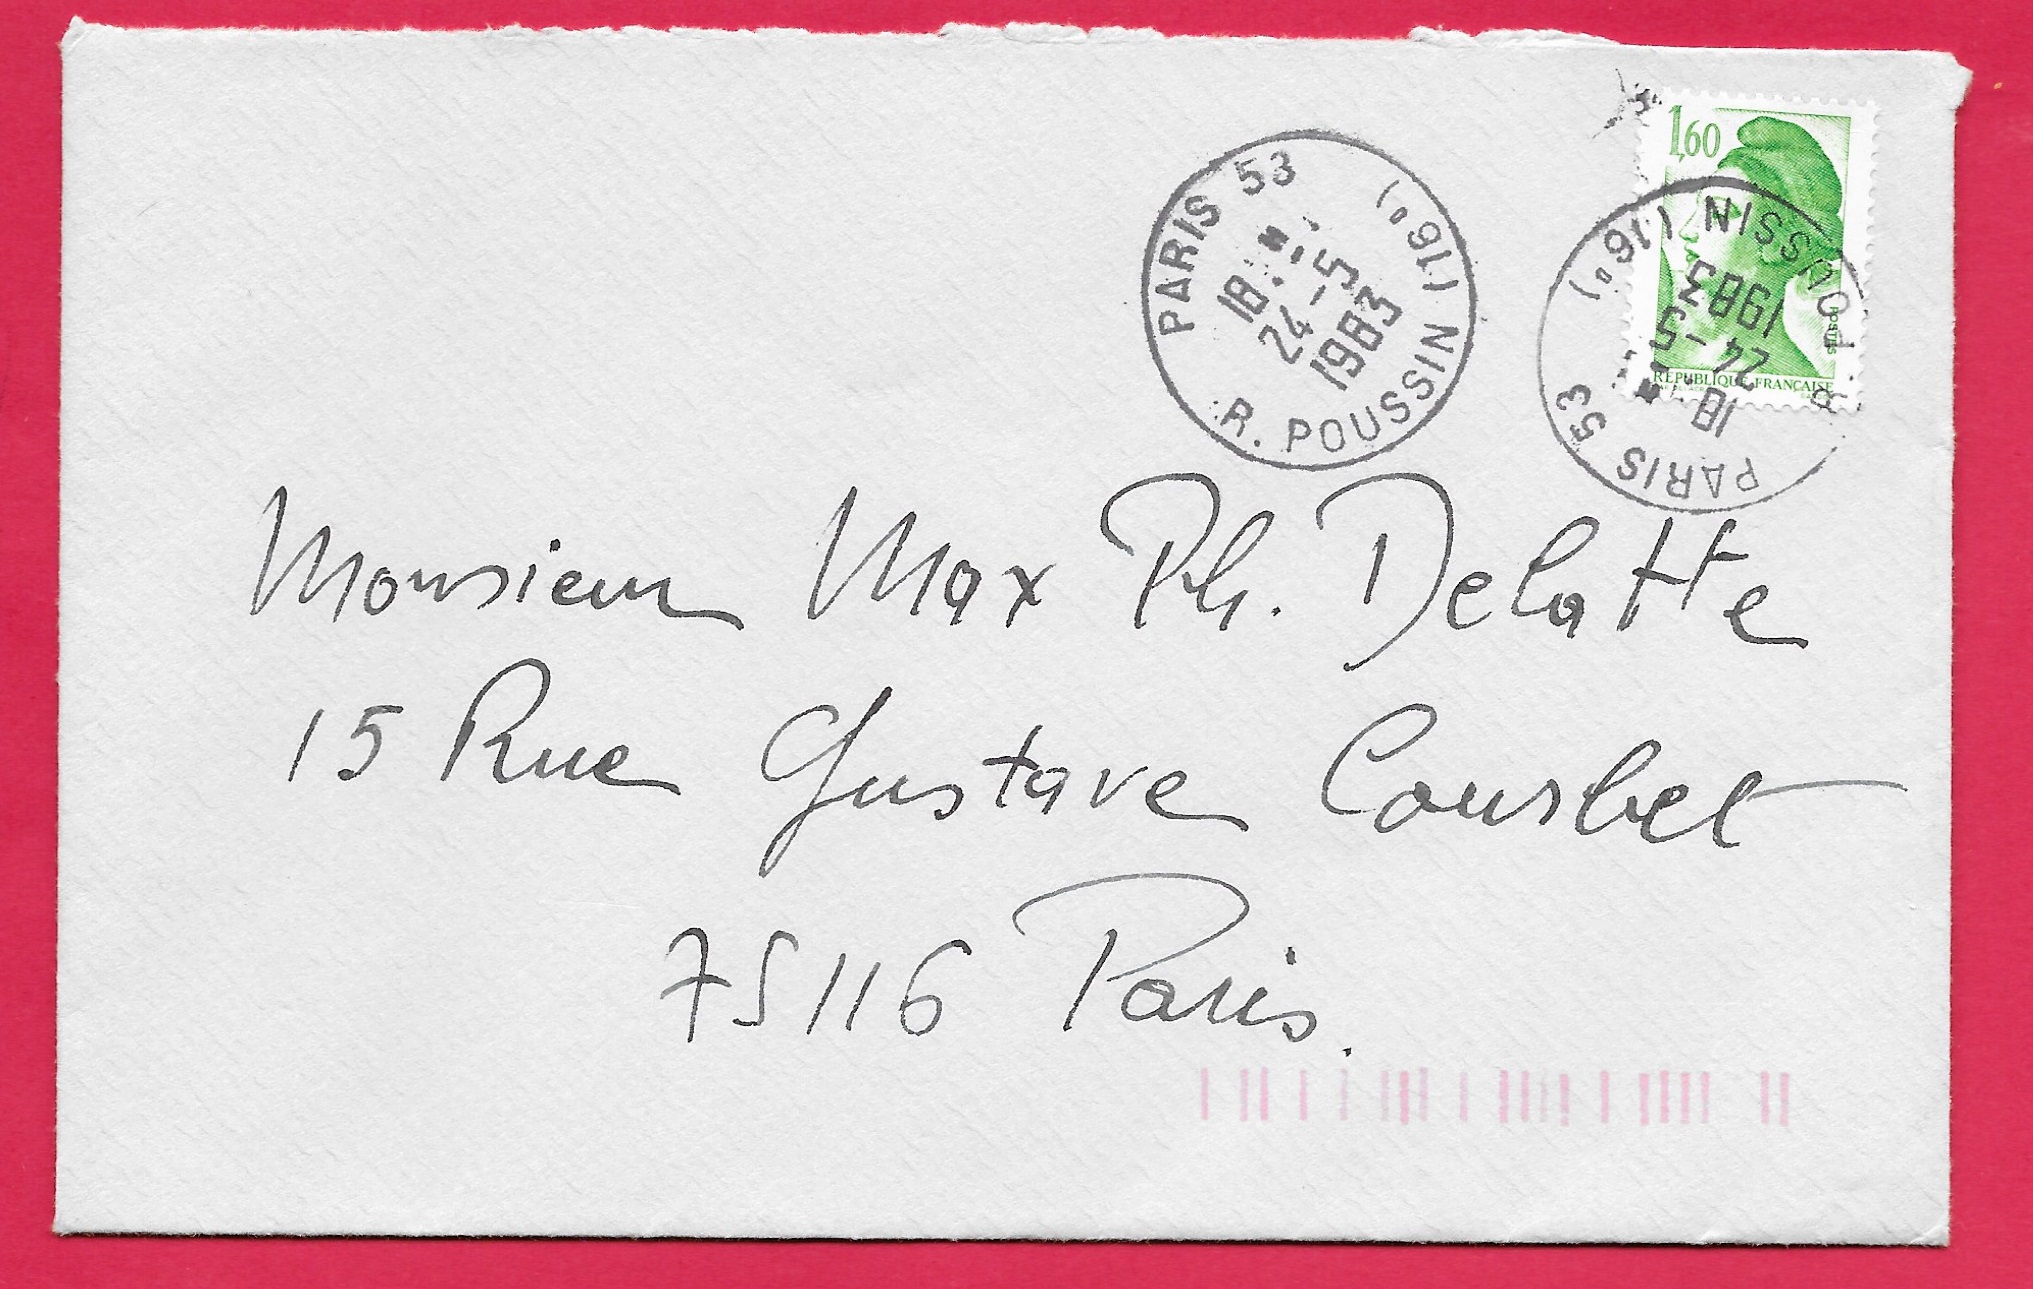 PARIS 53 (16e)
18 H
24 -5
1983
R. POUSSIN
1,60
POSTES
RÉPUBLIQUE FRANÇAISE
PARIS 53
18 H
24 -5
1983
R. POUSSIN (16e)
Monsieur Max Ph. Delatte
15 Rue Gustave Courbet
75116 Paris.